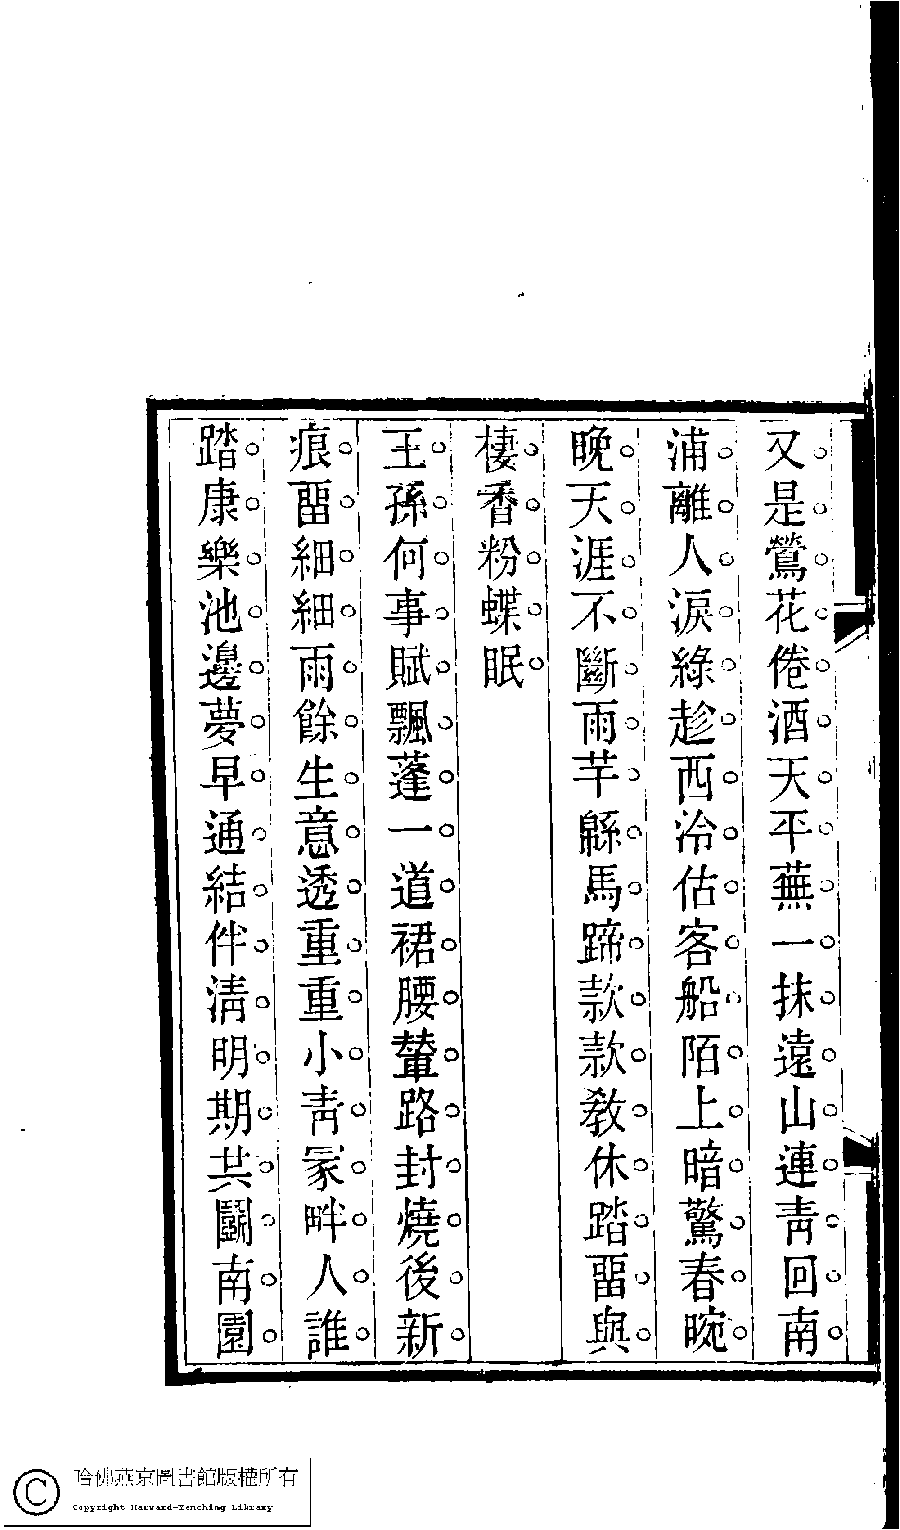 又是鶯花倦酒天平蕪一抹遠山連靑回南
浦離人淚綠趁西泠估客船陌上暗驚春晼
晚天涯不斷雨芊緜馬蹄款款敎休踏畱與
棲香粉蝶眠
王孫何事賦飄蓬一道裙腰輦路封燒後新
痕畱細細雨餘生意透重重小靑冢畔人誰
踏康樂池邊夢早通結伴淸明期共鬭南園
哈佛燕京圖書館版權所有
Copyright Harvard-Yenching Library